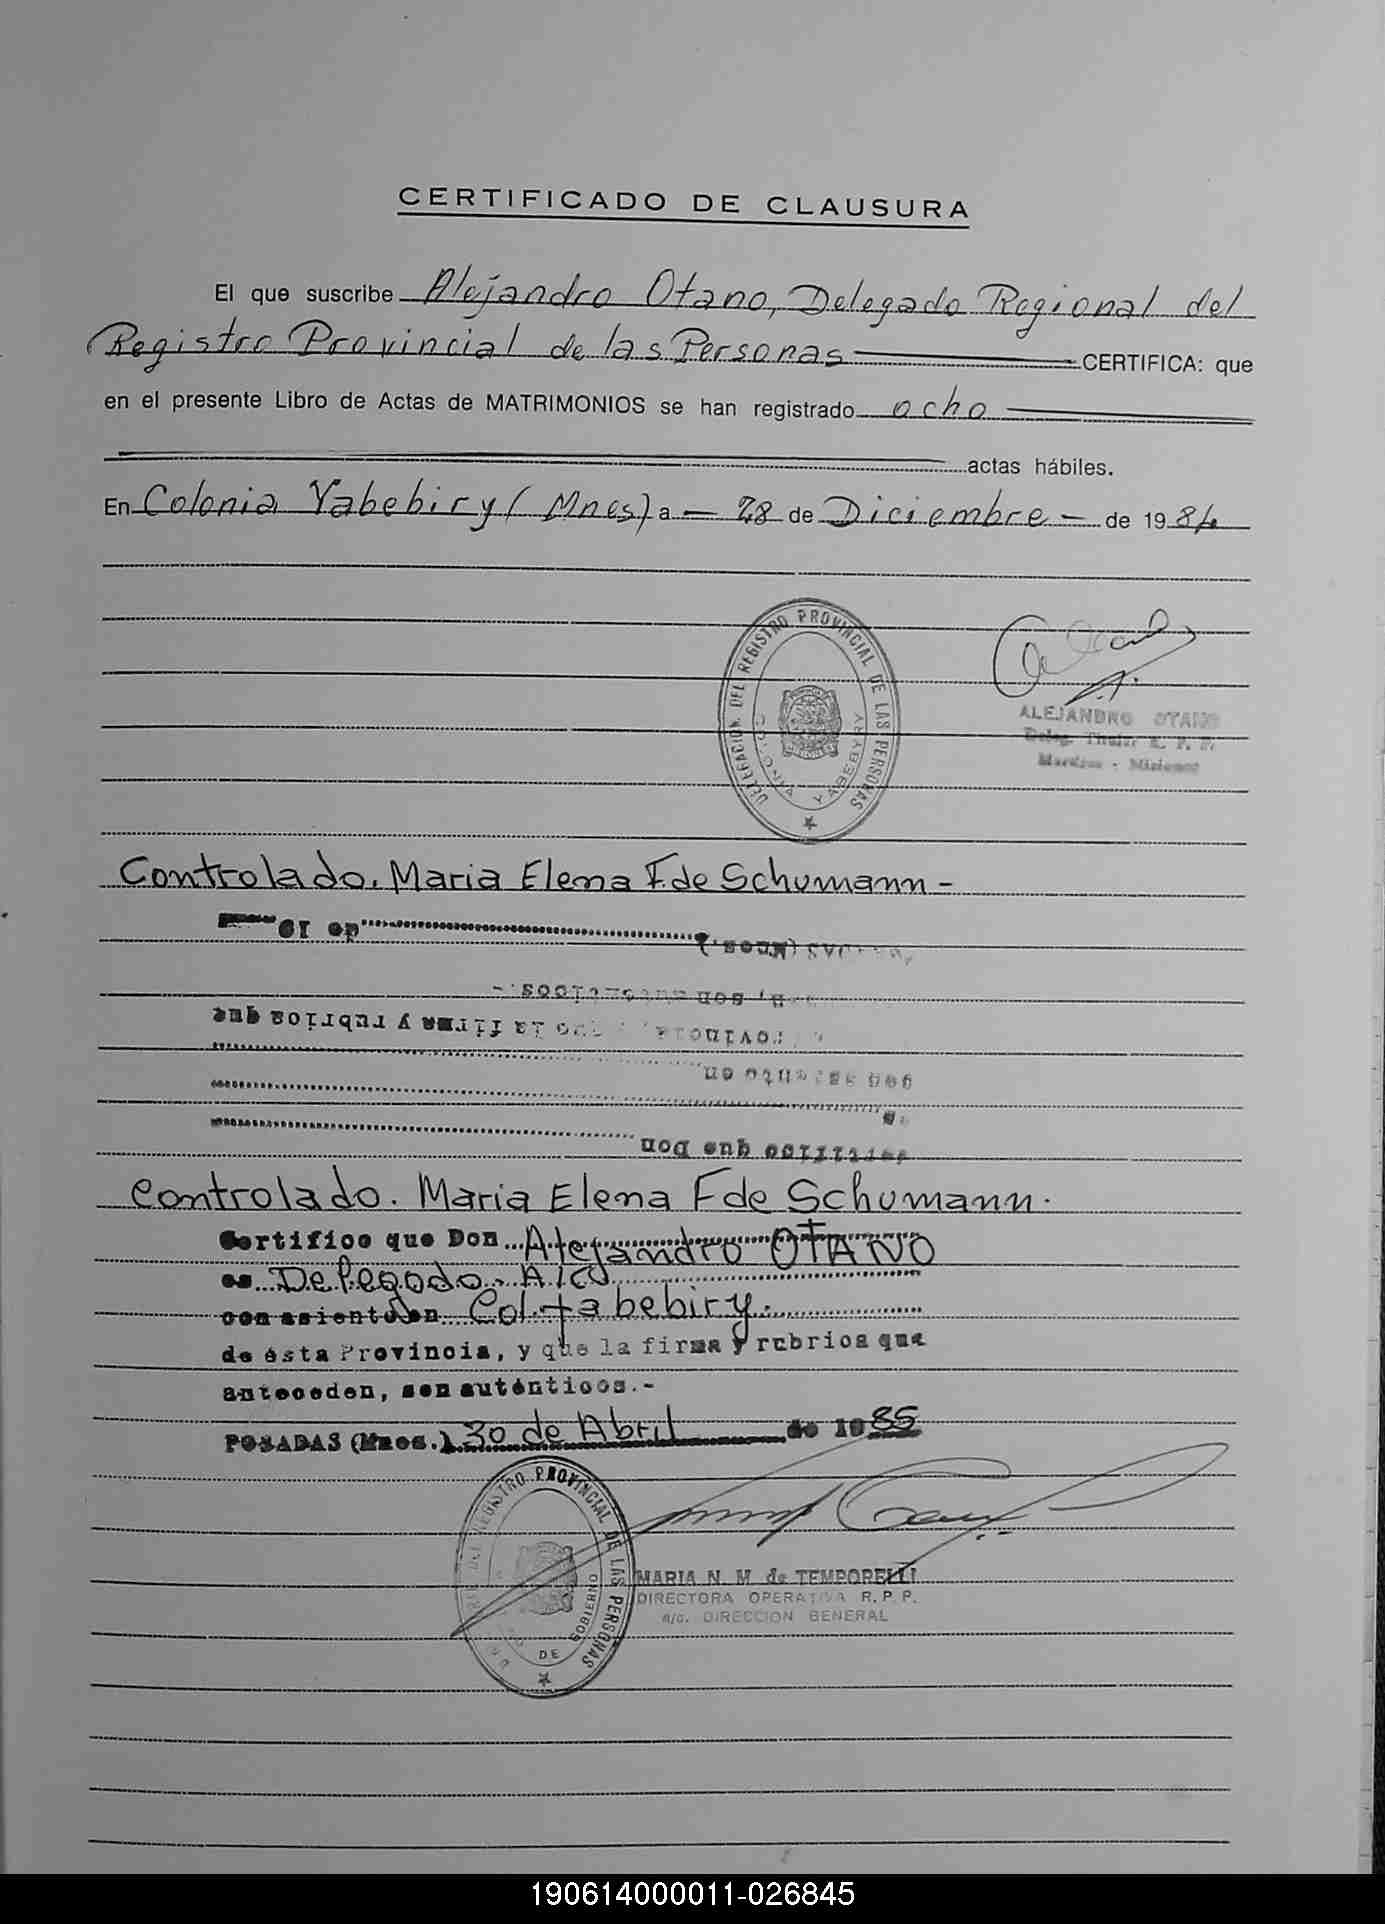 CERTIFICADO DE CLAUSURA
El que suscribe Alejandro Otano, Delegado Regional del
Registro Provincial de las Personas CERTIFICA: que
en el presente Libro de Actas de MATRIMONIOS se han registrado ocho
actas hábiles.
En Colonia Yabebiry (Mnes) a — 28 de Diciembre — de 1984
DELEGACION DEL REGISTRO PROVINCIAL DE LAS PERSONAS
COLONIA YABEBYRY
ALEJANDRO OTANO
Deleg. Titular R. P. P.
Misiones
Controlado. Maria Elena F. de Schumann -
de 19
(Mnes.)
, son auténticos.-
Provincia, que la firma y rubrica que
con asiento en
Certifico que Don
Controlado. Maria Elena F de Schumann.
Certifico que Don Alejandro OTANO
es Delegado
con asiento en Col. Yabebiry.
de ésta Provincia, y que la firma y rubrica que
anteceden, son auténticos.-
POSADAS (Mnes.) 30 de Abril de 1985
REGISTRO PROVINCIAL DE LAS PERSONAS
DE GOBIERNO
MARIA N. M. de TEMPORELLI
DIRECTORA OPERATIVA R. P. P.
a/c. DIRECCION GENERAL
190614000011-026845